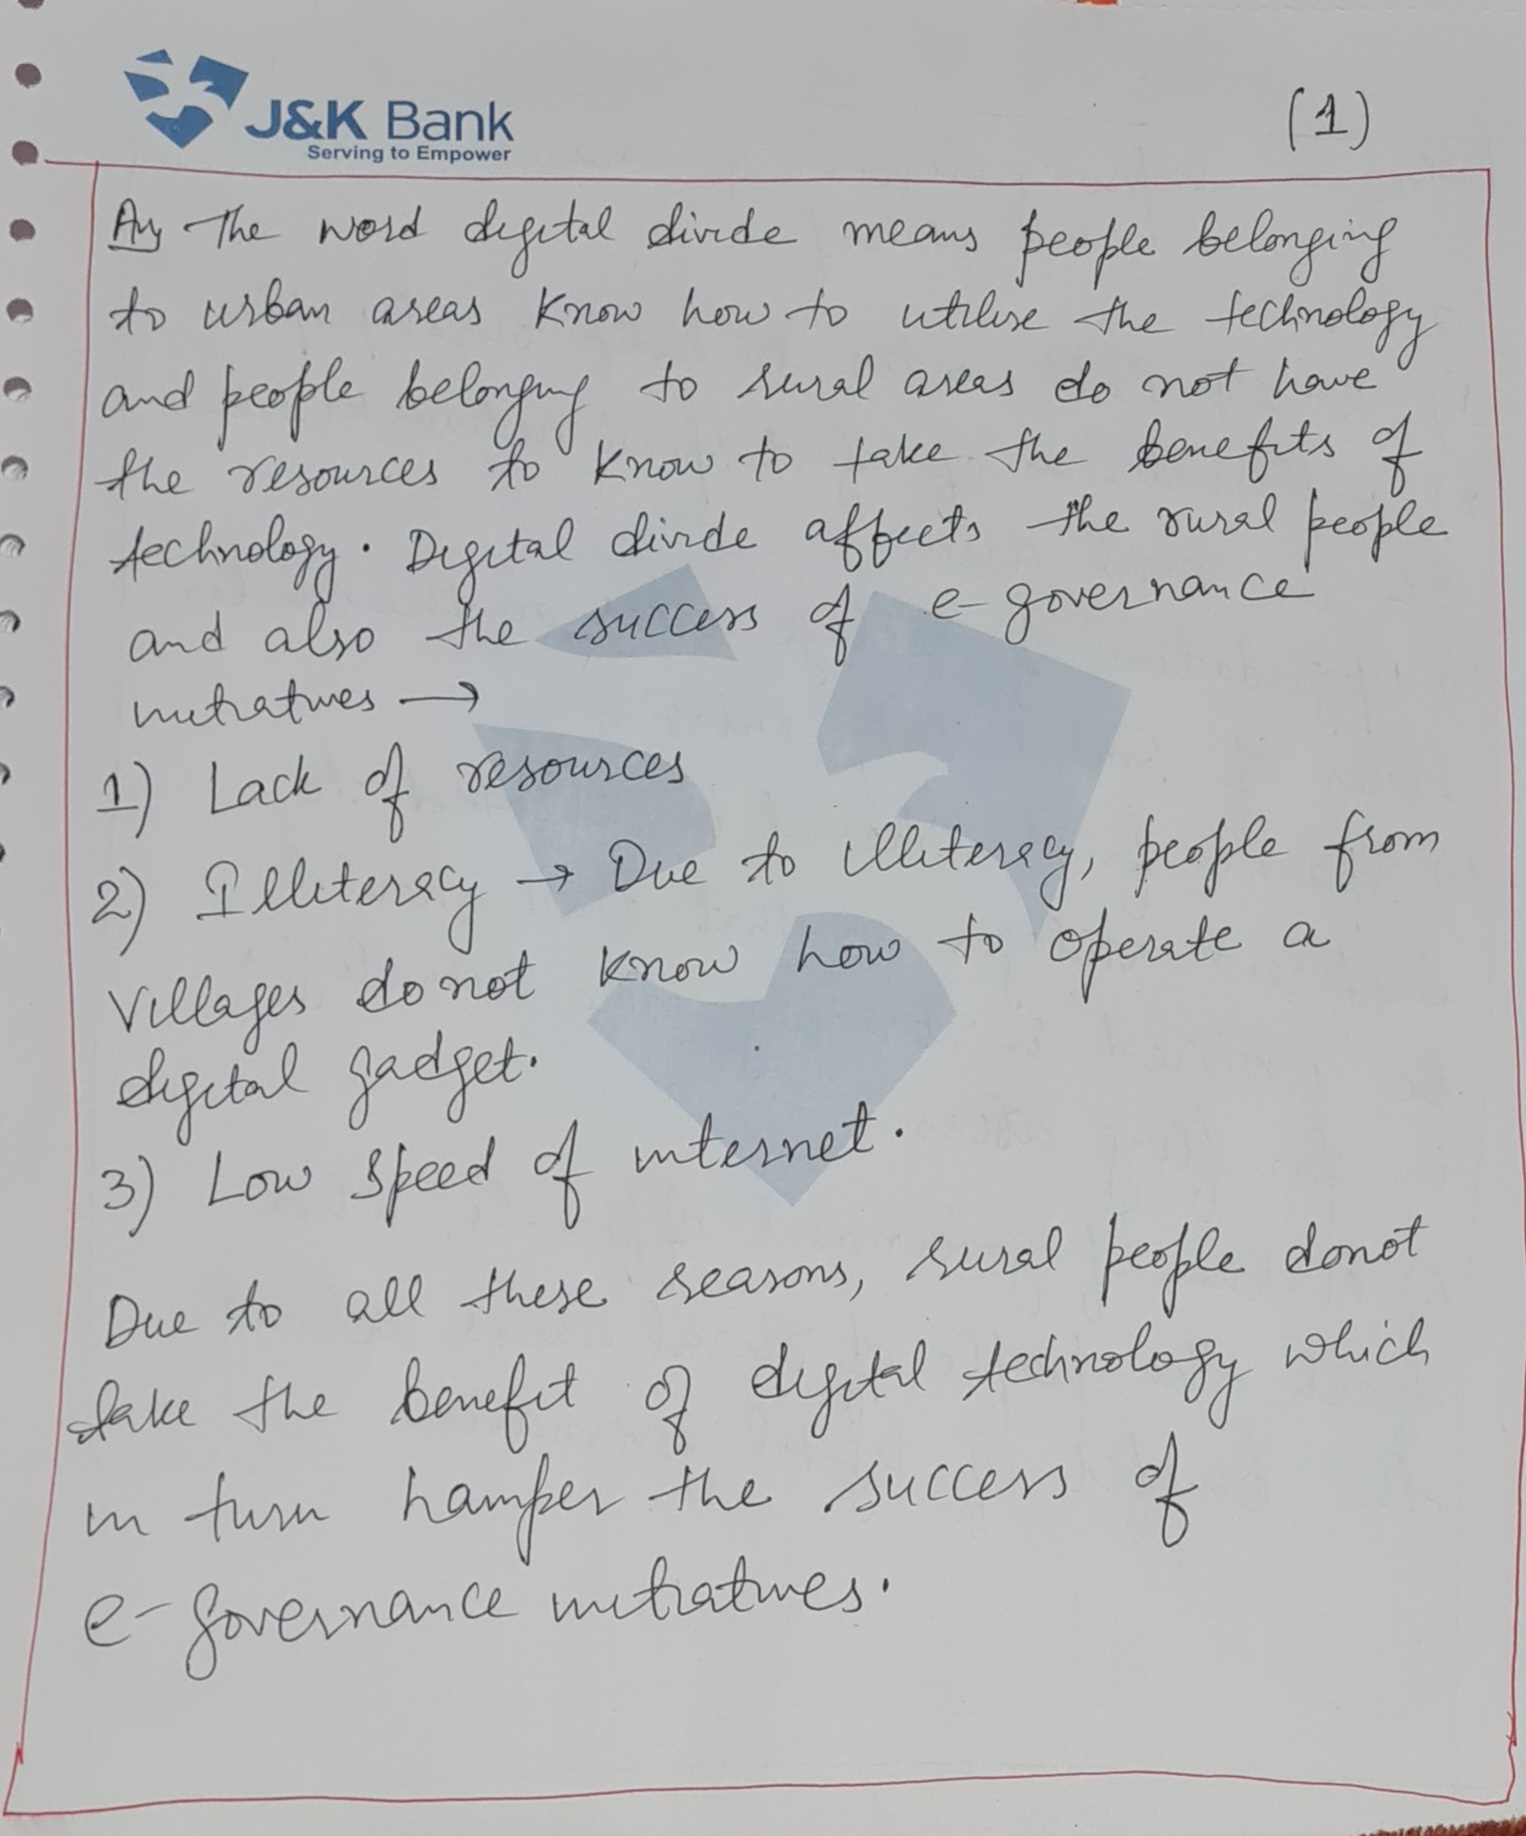 J&K Bank
Serving to Empower
(1)
Ans The word digital divide means people belonging
to urban areas know how to utilise the technology
and people belonging to rural areas do not have
the resources to know to take the benefits of
technology. Digital divide affects the rural people
and also the success of e-governance
initiatives →
1) Lack of resources
2) Illiteracy → Due to illiteracy, people from
villages do not know how to operate a
digital gadget.
3) Low speed of internet.
Due to all these reasons, rural people donot
take the benefit of digital technology which
in turn hamper the success of
e-governance initiatives.